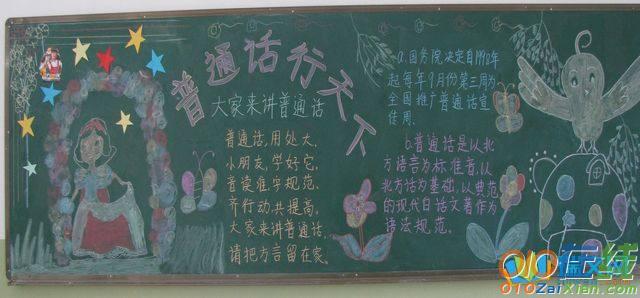 普通话行天下
大家来讲普通话
普通话,用处大,
小朋友,学好它,
音读准,字规范,
齐行动,共提高。
大家来讲普通话,
请把方言留在家。
a.国务院决定自1998年
起每年9月份第三周为
全国推广普通话宣
传周.
b.普通话是以北
方语言为标准音,以
北方话为基础,以典范
的现代白话文著作为
语法规范.
010ZaiXian.Com